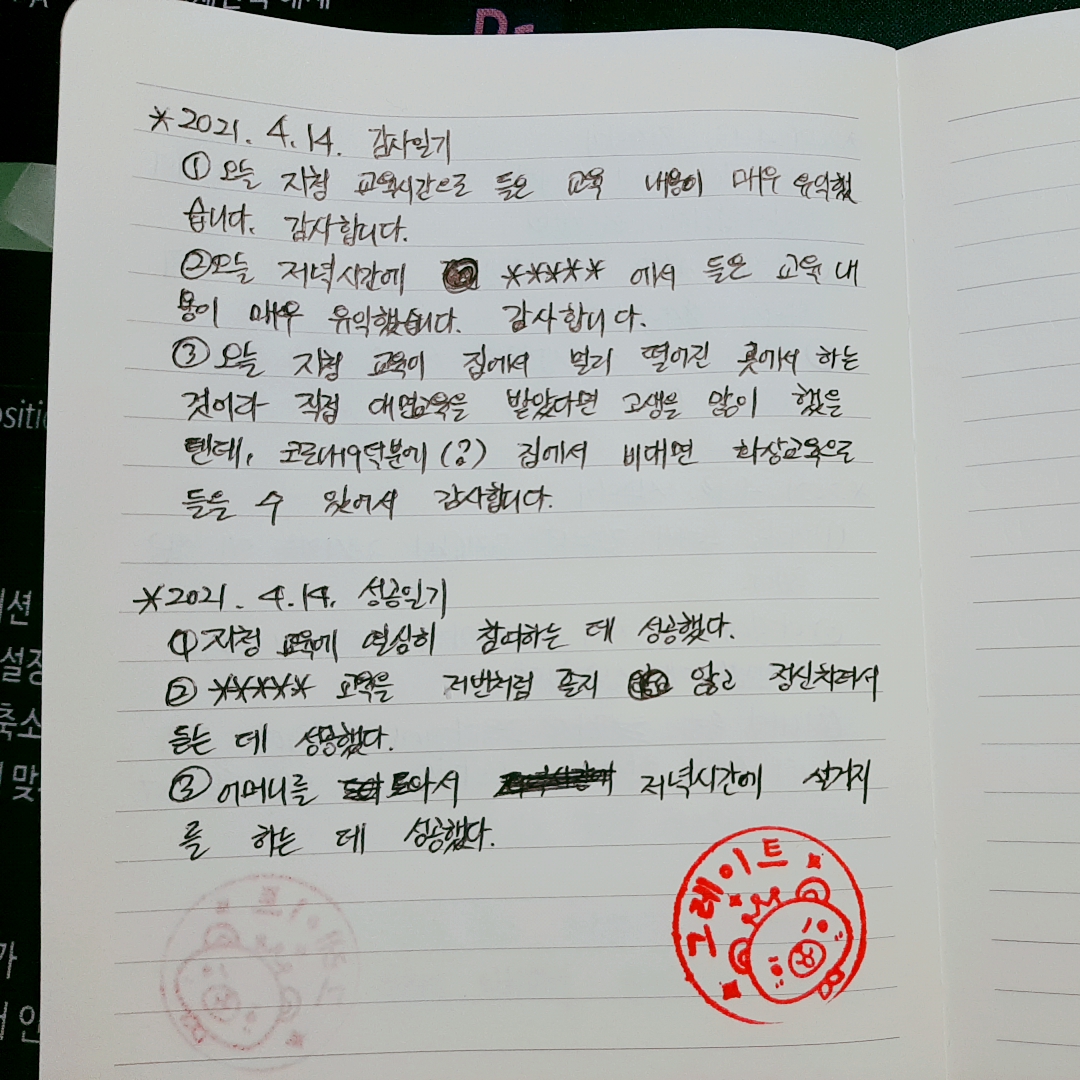 *2021. 4. 14. 감사일기
① 오늘 지청 교육시간으로 들은 교육 내용이 매우 유익했
습니다. 감사합니다.
②오늘 저녁시간에 ***** 에서 들은 교육 내
용이 매우 유익했습니다. 감사합니다.
③ 오늘 지청 교육이 집에서 멀리 떨어진 곳에서 하는
것이라 직접 대면교육을 받았다면 고생을 많이 했을
텐데, 코로나19덕분에(?) 집에서 비대면 화상교육으로
들을 수 있어서 감사합니다.
*2021. 4. 14. 성공일기
① 지청 교육에 열심히 참여하는 데 성공했다.
② ***** 교육을 저번처럼 졸지 않고 정신차려서
듣는 데 성공했다.
③ 어머니를 도와서 저녁시간에 설거지
를 하는 데 성공했다.
그레이트